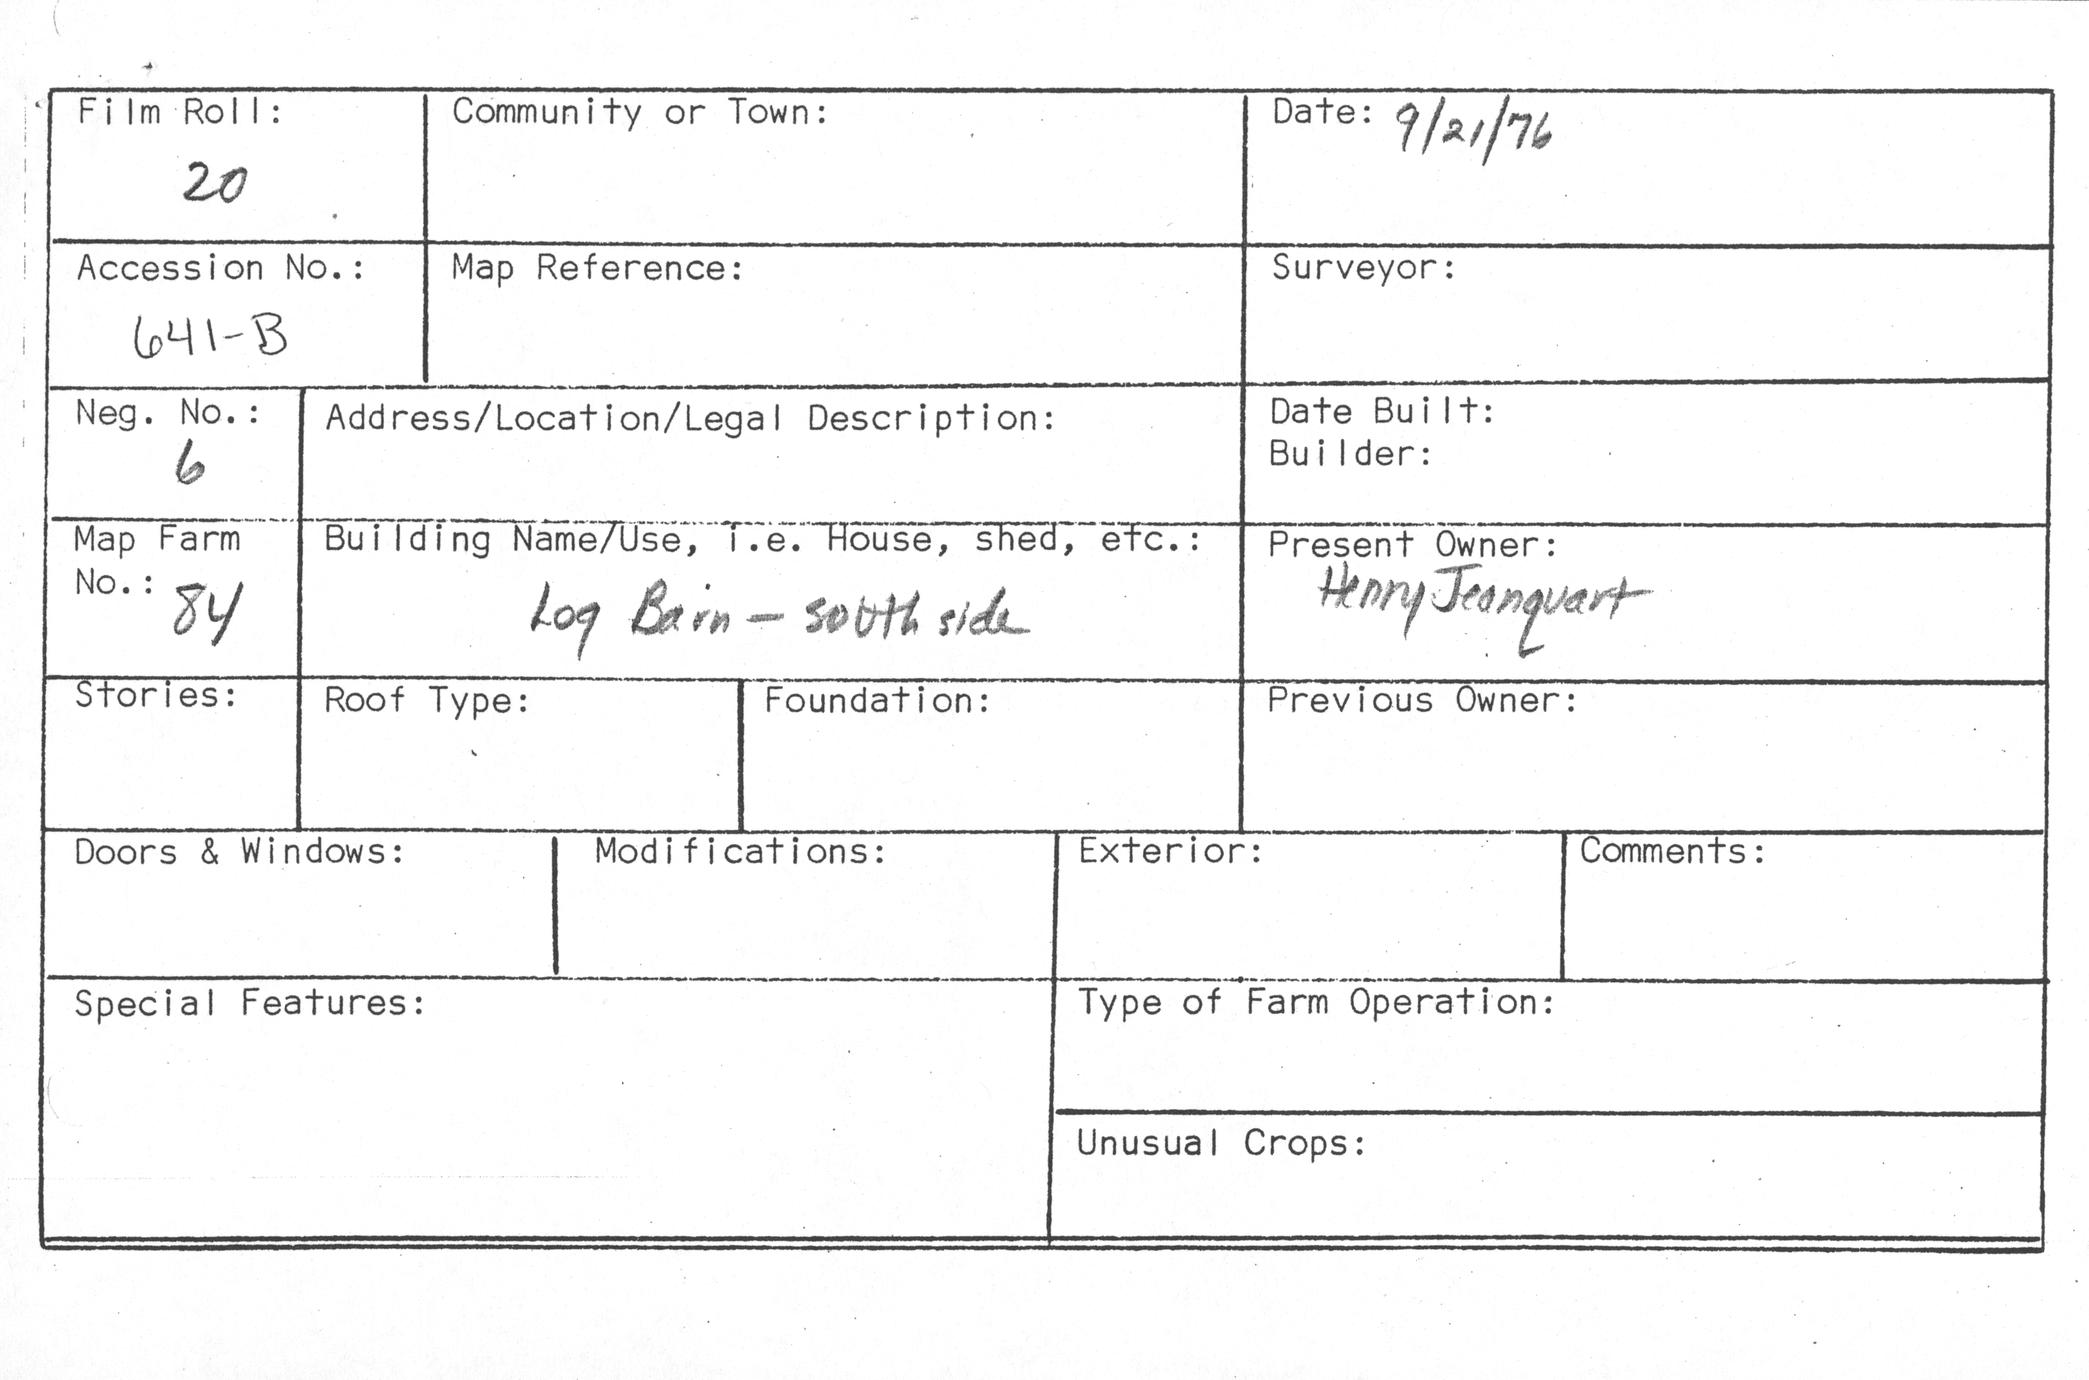 Film Roll:
20
Community or Town:
Date: 9/21/76
Accession No.:
641-B
Map Reference:
Surveyor:
Neg. No.:
6
Address/Location/Legal Description:
Date Built:
Builder:
Map Farm
No.: 84
Building Name/Use, i.e. House, shed, etc.:
Log Barn - south side
Present Owner:
Henry Jeanquart
Stories:
Roof Type:
Foundation:
Previous Owner:
Doors & Windows:
Modifications:
Exterior:
Comments:
Special Features:
Type of Farm Operation:
Unusual Crops: